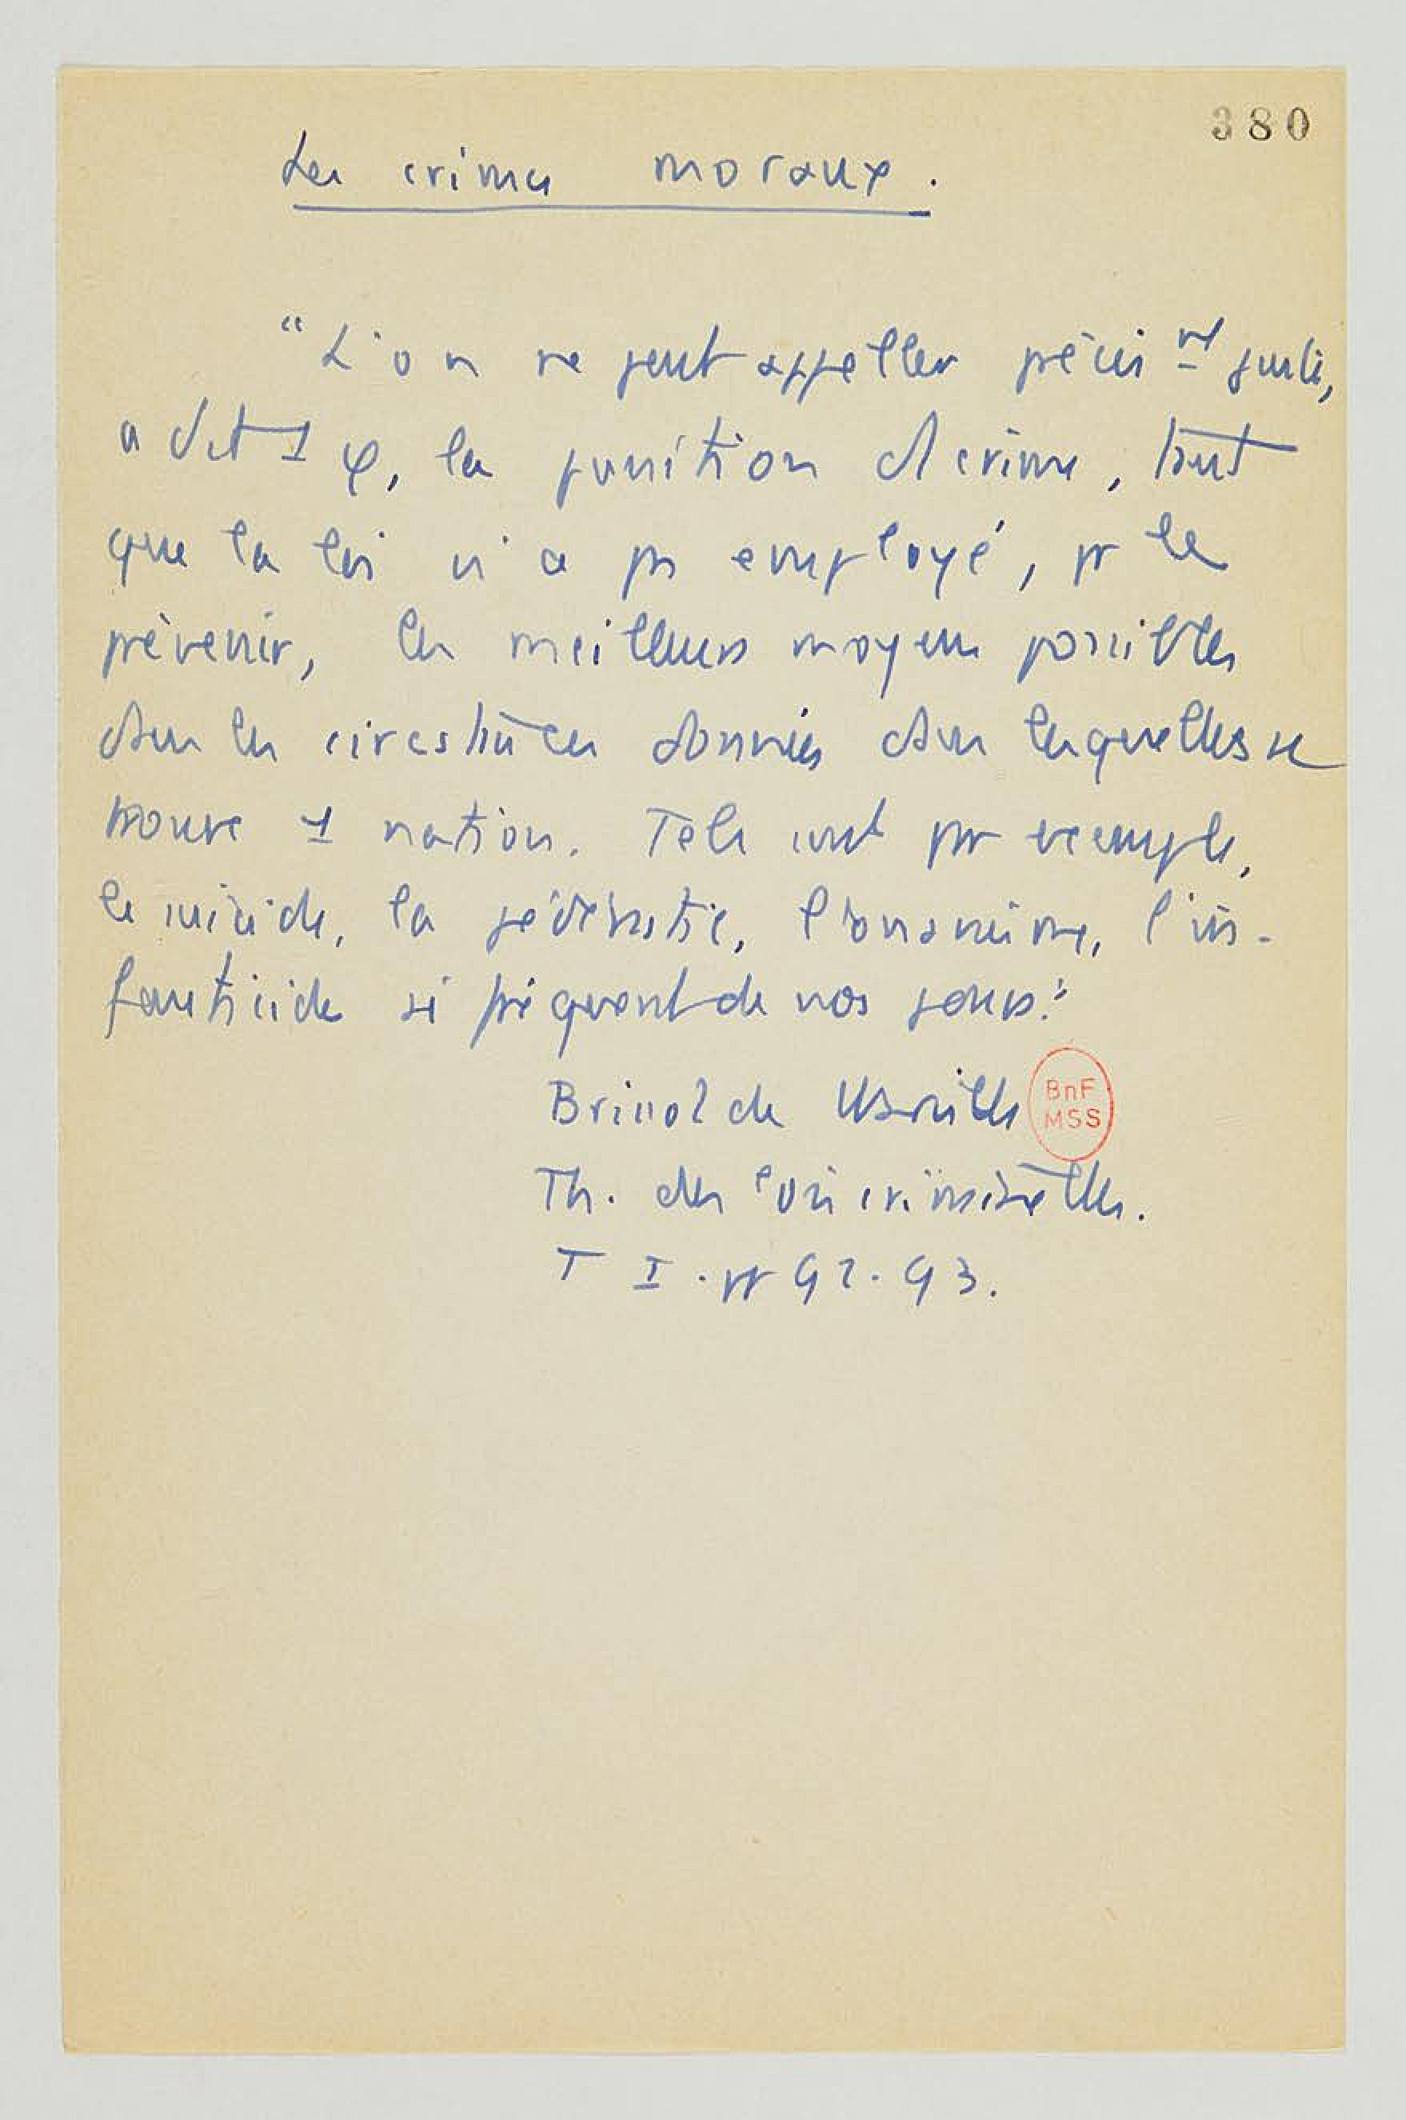 380
Les crimes moraux.
“L'on ne peut appeller précis mt juste,
a dit 1 φ, la punition d crime, tant
que la loi n'a ps employé, pr le
prévenir, les meilleurs moyens possibles
dans les circstances données dans lesquelles se
trouve 1 nation. Tels sont par exemple,
le suicide, la pédérastie, l'onanisme, l'in-
fanticide si fréquent de nos jours”
Brissot de Warville
BnF
MSS
Th. des lois criminelles.
T I. pp 92-93.